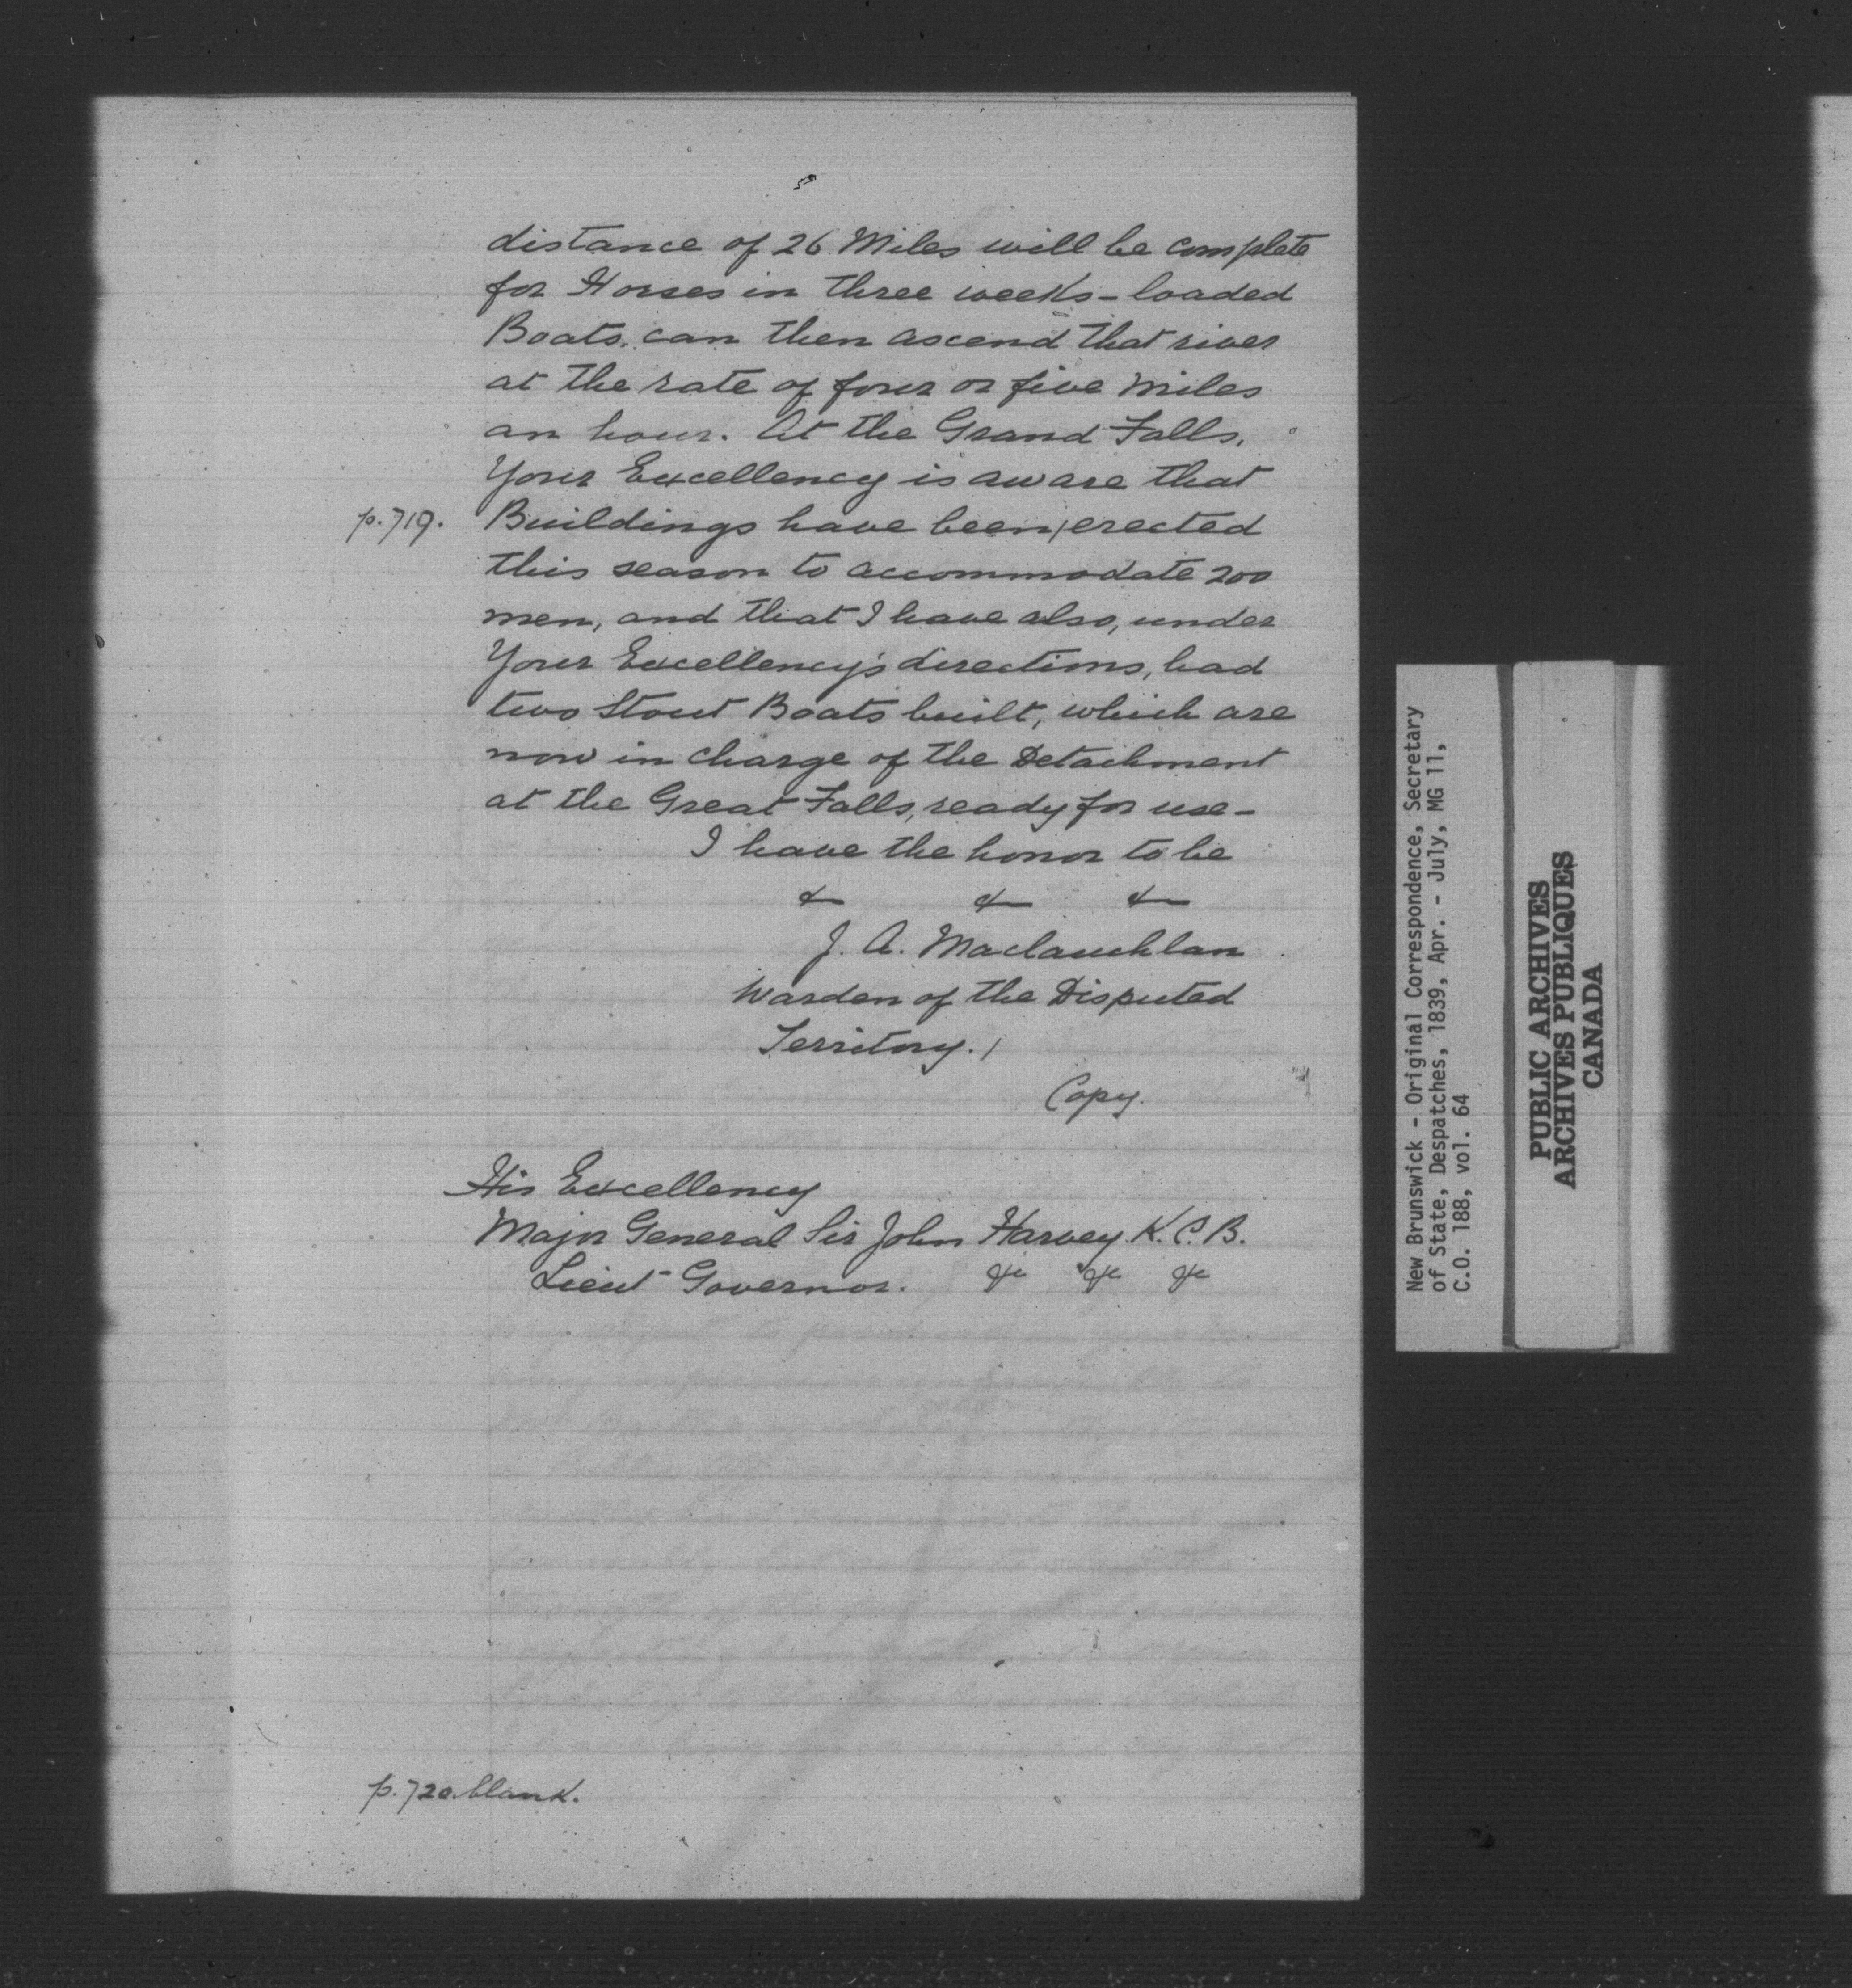 distance of 26 Miles will be complete
for Horses in three weeks - loaded
Boats. can then ascend that river
at the rate of four or five Miles
an hour. At the Grand Falls,
Your Excellency is aware that
p. 719. Buildings have been/erected
this season to accommodate 200
men, and that I have also, under
Your Excellency's directions, had
two Stout Boats built, which are
now in charge of the Detachment
at the Great Falls, ready for use -
I have the honor to be
&c &c &c
J. A. Maclauchlan
Warden of the Disputed
Territory. /
Copy.
His Excellency
Major General Sir John Harvey K.C.B.
Lieut - Governor. &c &c &c
p. 720. blank.
New Brunswick - Original Correspondence, Secretary
of State, Despatches, 1839, Apr. - July, MG 11,
C.O. 188, vol. 64
PUBLIC ARCHIVES
ARCHIVES PUBLIQUES
CANADA